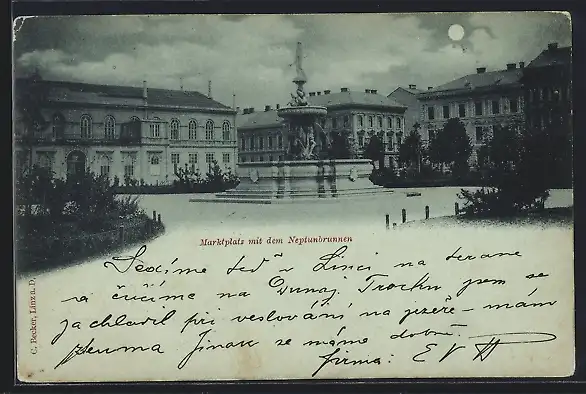 Marktplatz mit dem Neptunbrunnen
Sedíme teď v Linci na terase
a čučíme na Dunaj. Trochu jsem se
zachladil při veslování na jezeře – mám
rheuma jinak se máme dobře.
firma: E V H
C. Becker, Linz a. D.